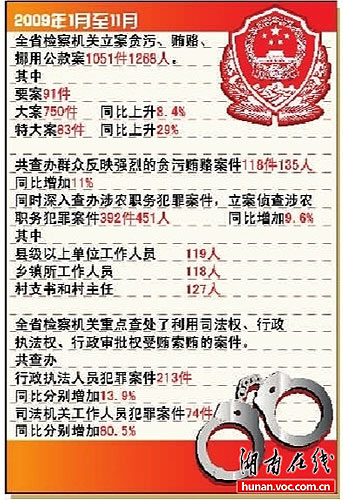 2009年1月至11月
全省检察机关立案贪污、贿赂、
挪用公款案1051件1268人。
其中
要案91件
大案750件 同比上升8.4%
特大案83件 同比上升29%
共查办群众反映强烈的贪污贿赂案件118件135人
同比增加11%
同时深入查办涉农职务犯罪案件，立案侦查涉农
职务犯罪案件392件451人 同比增加9.6%
其中
县级以上单位工作人员 119人
乡镇所工作人员 118人
村支书和村主任 127人
全省检察机关重点查处了利用司法权、行政
执法权、行政审批权受贿索贿的案件。
共查办
行政执法人员犯罪案件213件
同比分别增加13.9%
司法机关工作人员犯罪案件74件
同比分别增加60.5%
湖南在线
hunan.voc.com.cn